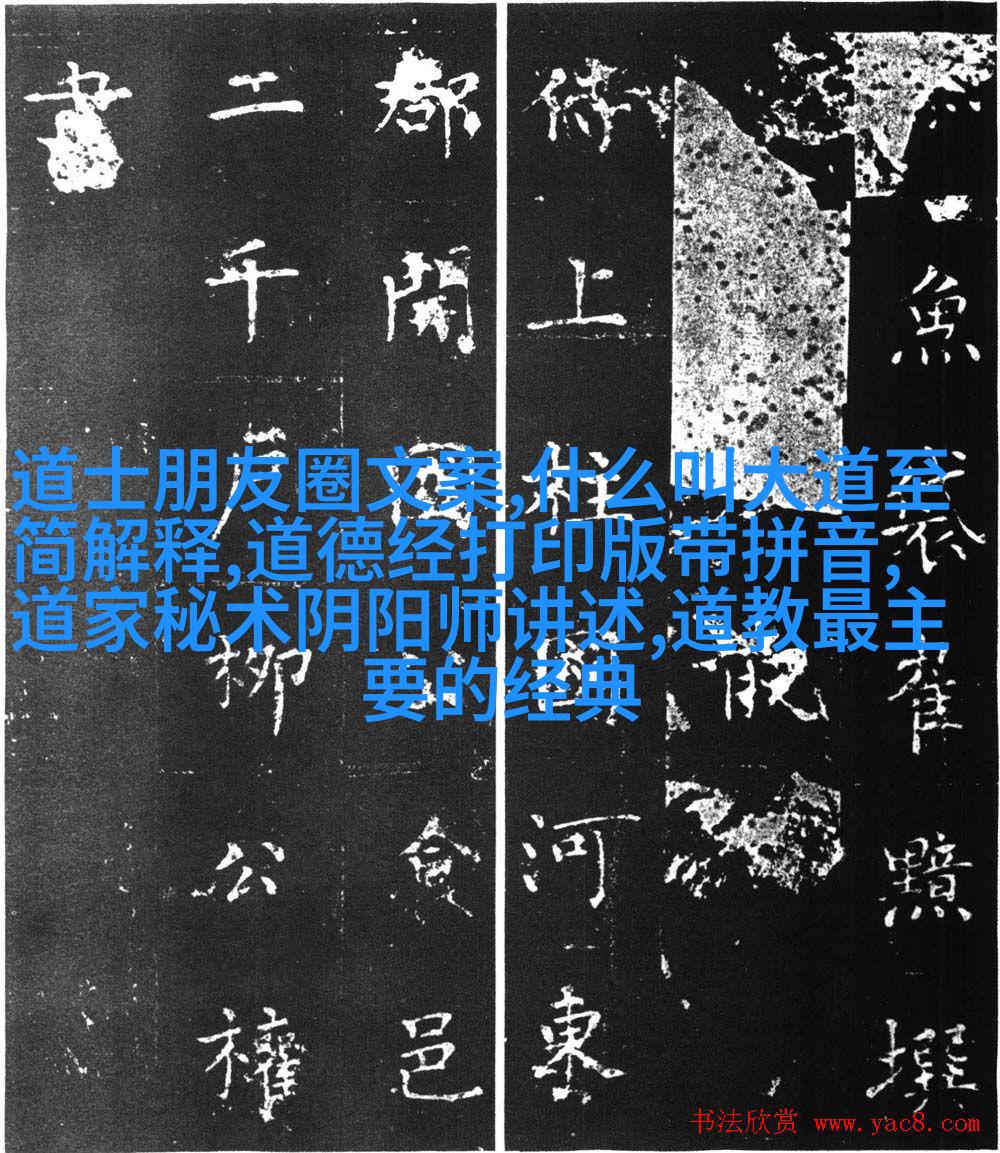 魚袋崔黯撰
觀
侍上柱國河東
郡開國公食邑
二千戶柳公權
書
道士朋友圈文案,什么叫大道至
简解释,道德经打印版带拼音,
道家秘术阴阳师讲述,道教最主
要的经典
书法欣赏 www.yac8.com